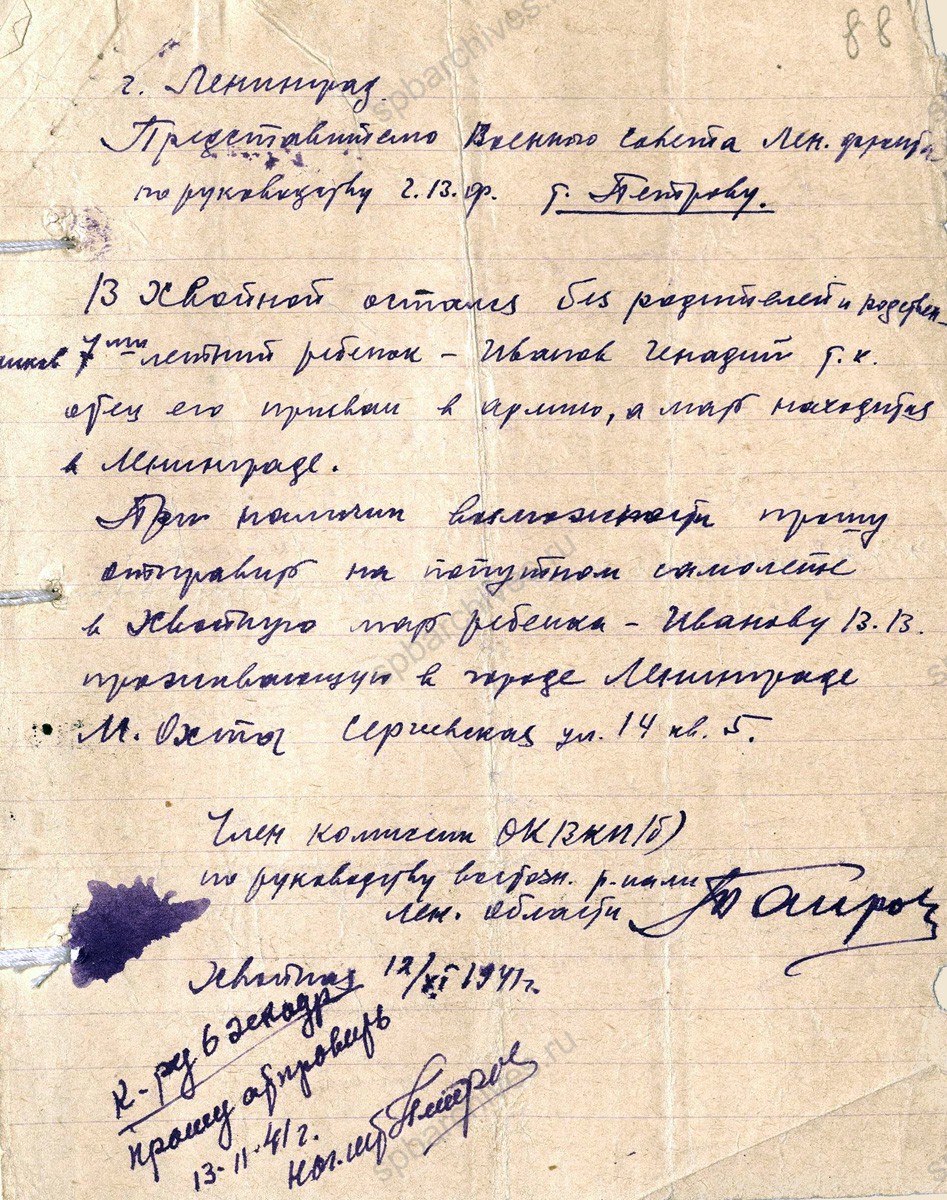 88
г. Ленинград
Представителю Военного Совета Лен. фронта
по руководству Г.В.Ф. т. Петрову.
В Хвойной остался без родителей и родствен-
ников 7ми летний ребенок - Иванов Генадий т.к.
отец его призван в армию, а мать находится
в Ленинграде.
При наличии возможности прошу
отправить на попутном самолете
в Хвойную мать ребенка - Иванову В.В.
проживающую в городе Ленинграде
М. Охта Сергиевская ул. 14 кв. 5.
Член комиссии ОК ВКП(б)
по руководству восточн. р-нами
Лен. Области
Хвойная 12/XI 1941 г.
К-ру 6 эскадр
прошу отправить
13-11-41 г.
Петров
spbarchives.ru